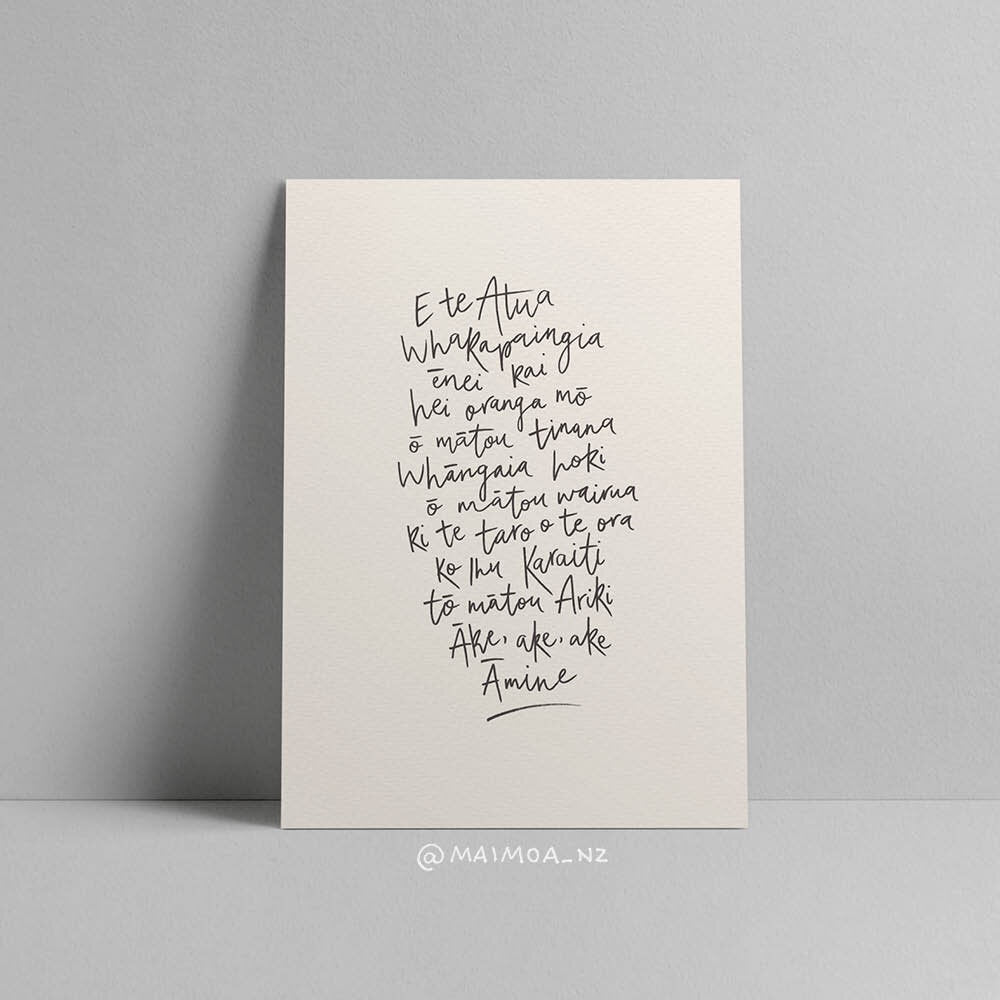 E te Atua
Whakapaingia
ēnei kai
hei oranga mō
ō mātou tinana
Whāngaia hoki
ō mātou wairua
ki te taro o te ora
ko Ihu Karaiti
tō mātou Ariki
Āke, ake, ake
Āmine
@MAIMOA_NZ